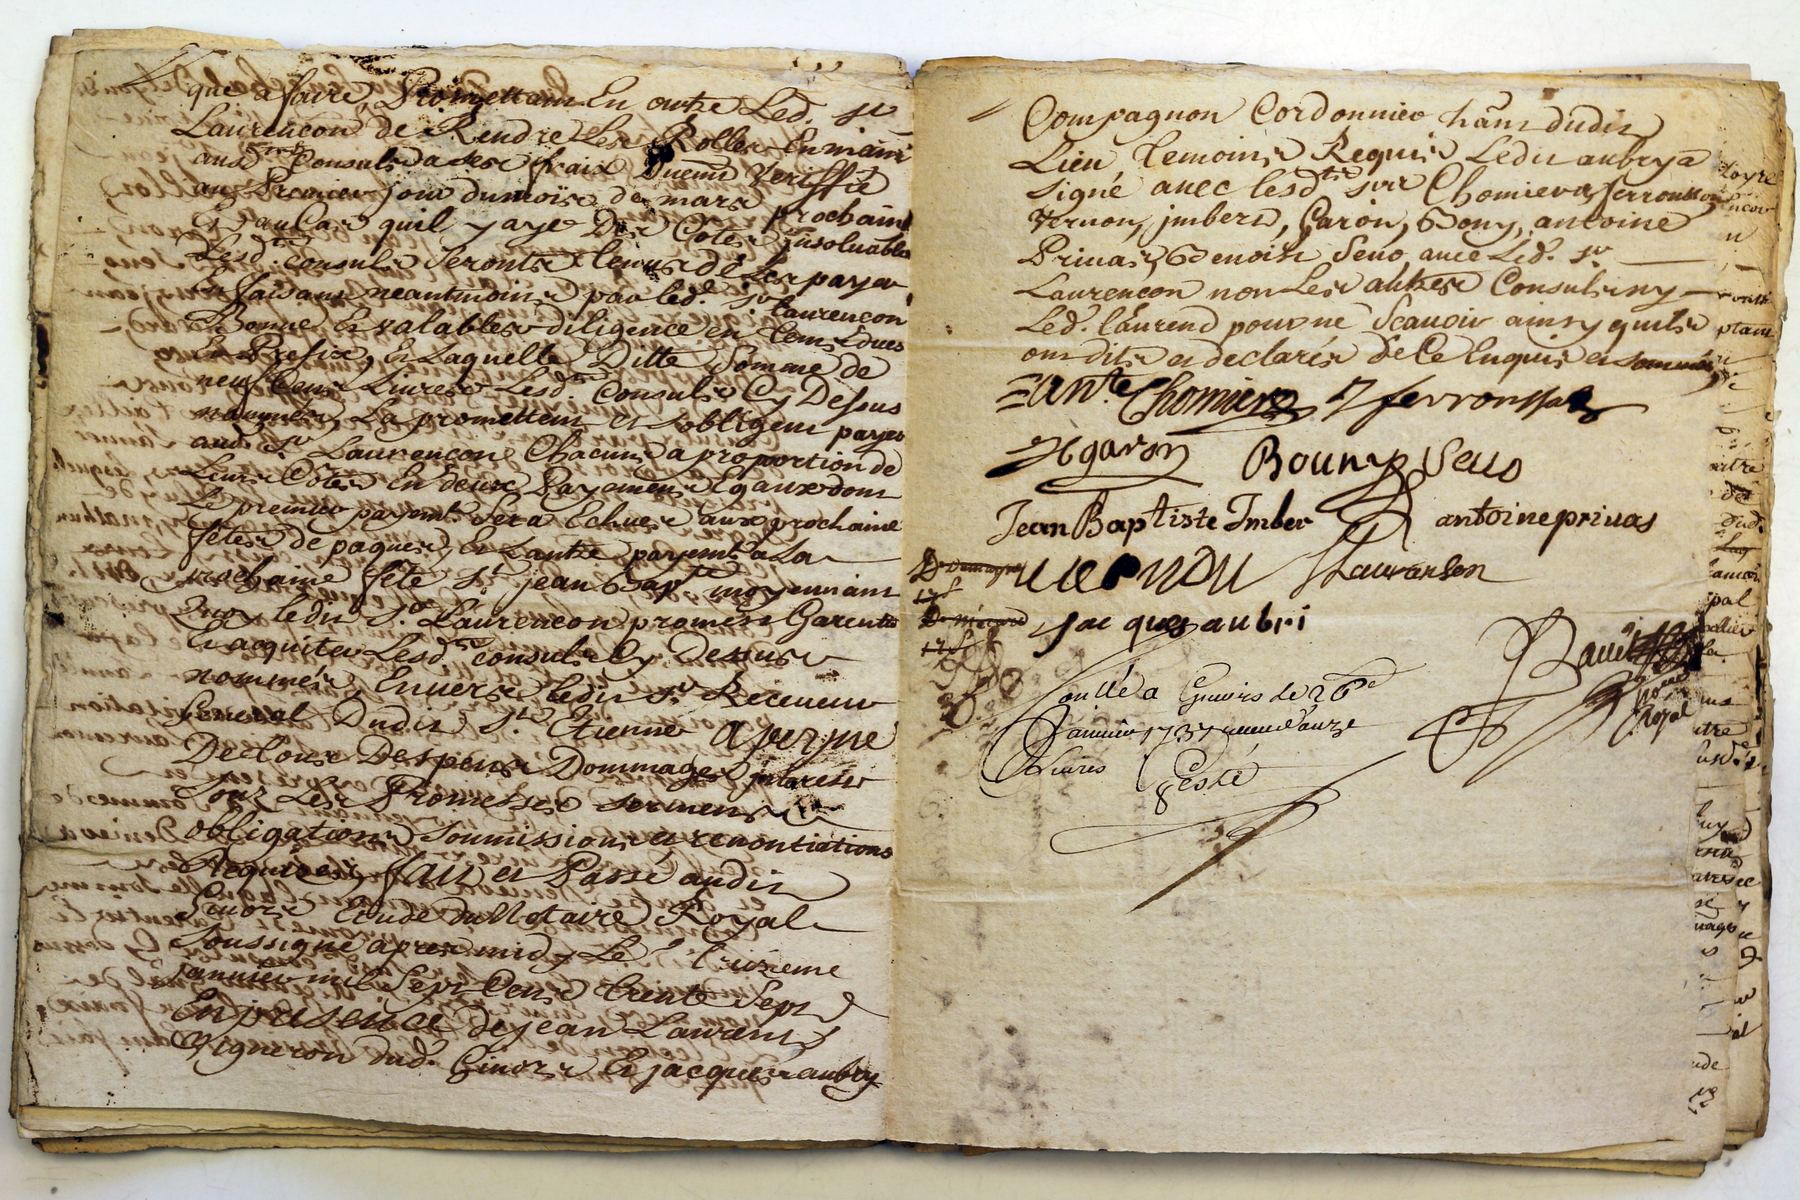 que a faire, Promettant En outre Led. sr
Laurencon de Rendre Les Rolles En main
ausd. Consuls a ses frais Duement Veriffié
au Premier jour dumois de mars prochain
Et au Cas quil y aye Des Cotes jnsoluables
Lesd. consuls seronts tenus de Les payer
En faisant neantmoins par led. sr. laurencon
Bonne Et valables diligence en tems dues
Et Prefix, Et Laquelle Ditte Somme de
neuf Cens Livres Lesd. Consuls Cy Dessus
nommés, La promettent et sobligent payer
aud. Sr. Laurencon Chacuns a proportion de
Leurs Cotes En deux Payements Egaux dont
Le premier payemt. sera Echues aux prochaine
fetes de paques, Et Lautre payemt. a La
prochaine fete St. jean Bapte. moyennant
Quoy ledit Sr. Laurencon promes Garentir
Et acquiter Lesd. consuls Cy Dessus
nommés, Envers ledit Sr. Receveur
General Dudit St. Etienne a peyne
De tous Despens Dommages jnterests
Sous Les Promesses serments
obligations Soumissions et renontiations
Requises, fait et Passé audit
Givors Etude du Notaire Royal
Soussigné apres midy Le truzieme
janvier mil Sept Cens trente Sept
En presence de jean Laurent
Vigneron dud. Givors Et jacques aubry
Compagnon Cordonnier hant. dudit
Lieu temoins Requis Ledit aubry a
signé avec lesdts. srs Chomier, ferroussat
Vernon, jmbert, Garon, Bony, antoine
Privas, Benoist Seno avec Led. sr.
Laurencon non Les autres Consuls ny
Led. laurend pour ne Scavoir ainsy quils
ont dits et declarés de Ce Enquis et sommés
ante Chomier ferroussat
garon Bouny Seno
Jean Baptiste Imber antoine privas
vernon Lauranson
Jacques aubri
Controllé a Givors le 26e
Janvier 1737 receu douze
Livres
Royal